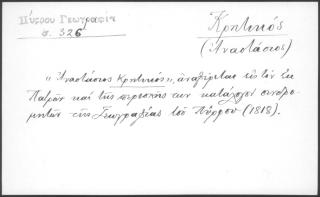 Πύρρου Γεωγραφία
σ. 326
Κρητικός
(Ἀναστάσιος)
"Ἀναστάσιος Κρητικός", ἀναφέρεται εἰς τὸν ἐκ
Πατρῶν καὶ τῆς περιοχῆς των κατάλογον συνδρο-
μητῶν τῆς Γεωγραφίας τοῦ Πύρρου (1818).